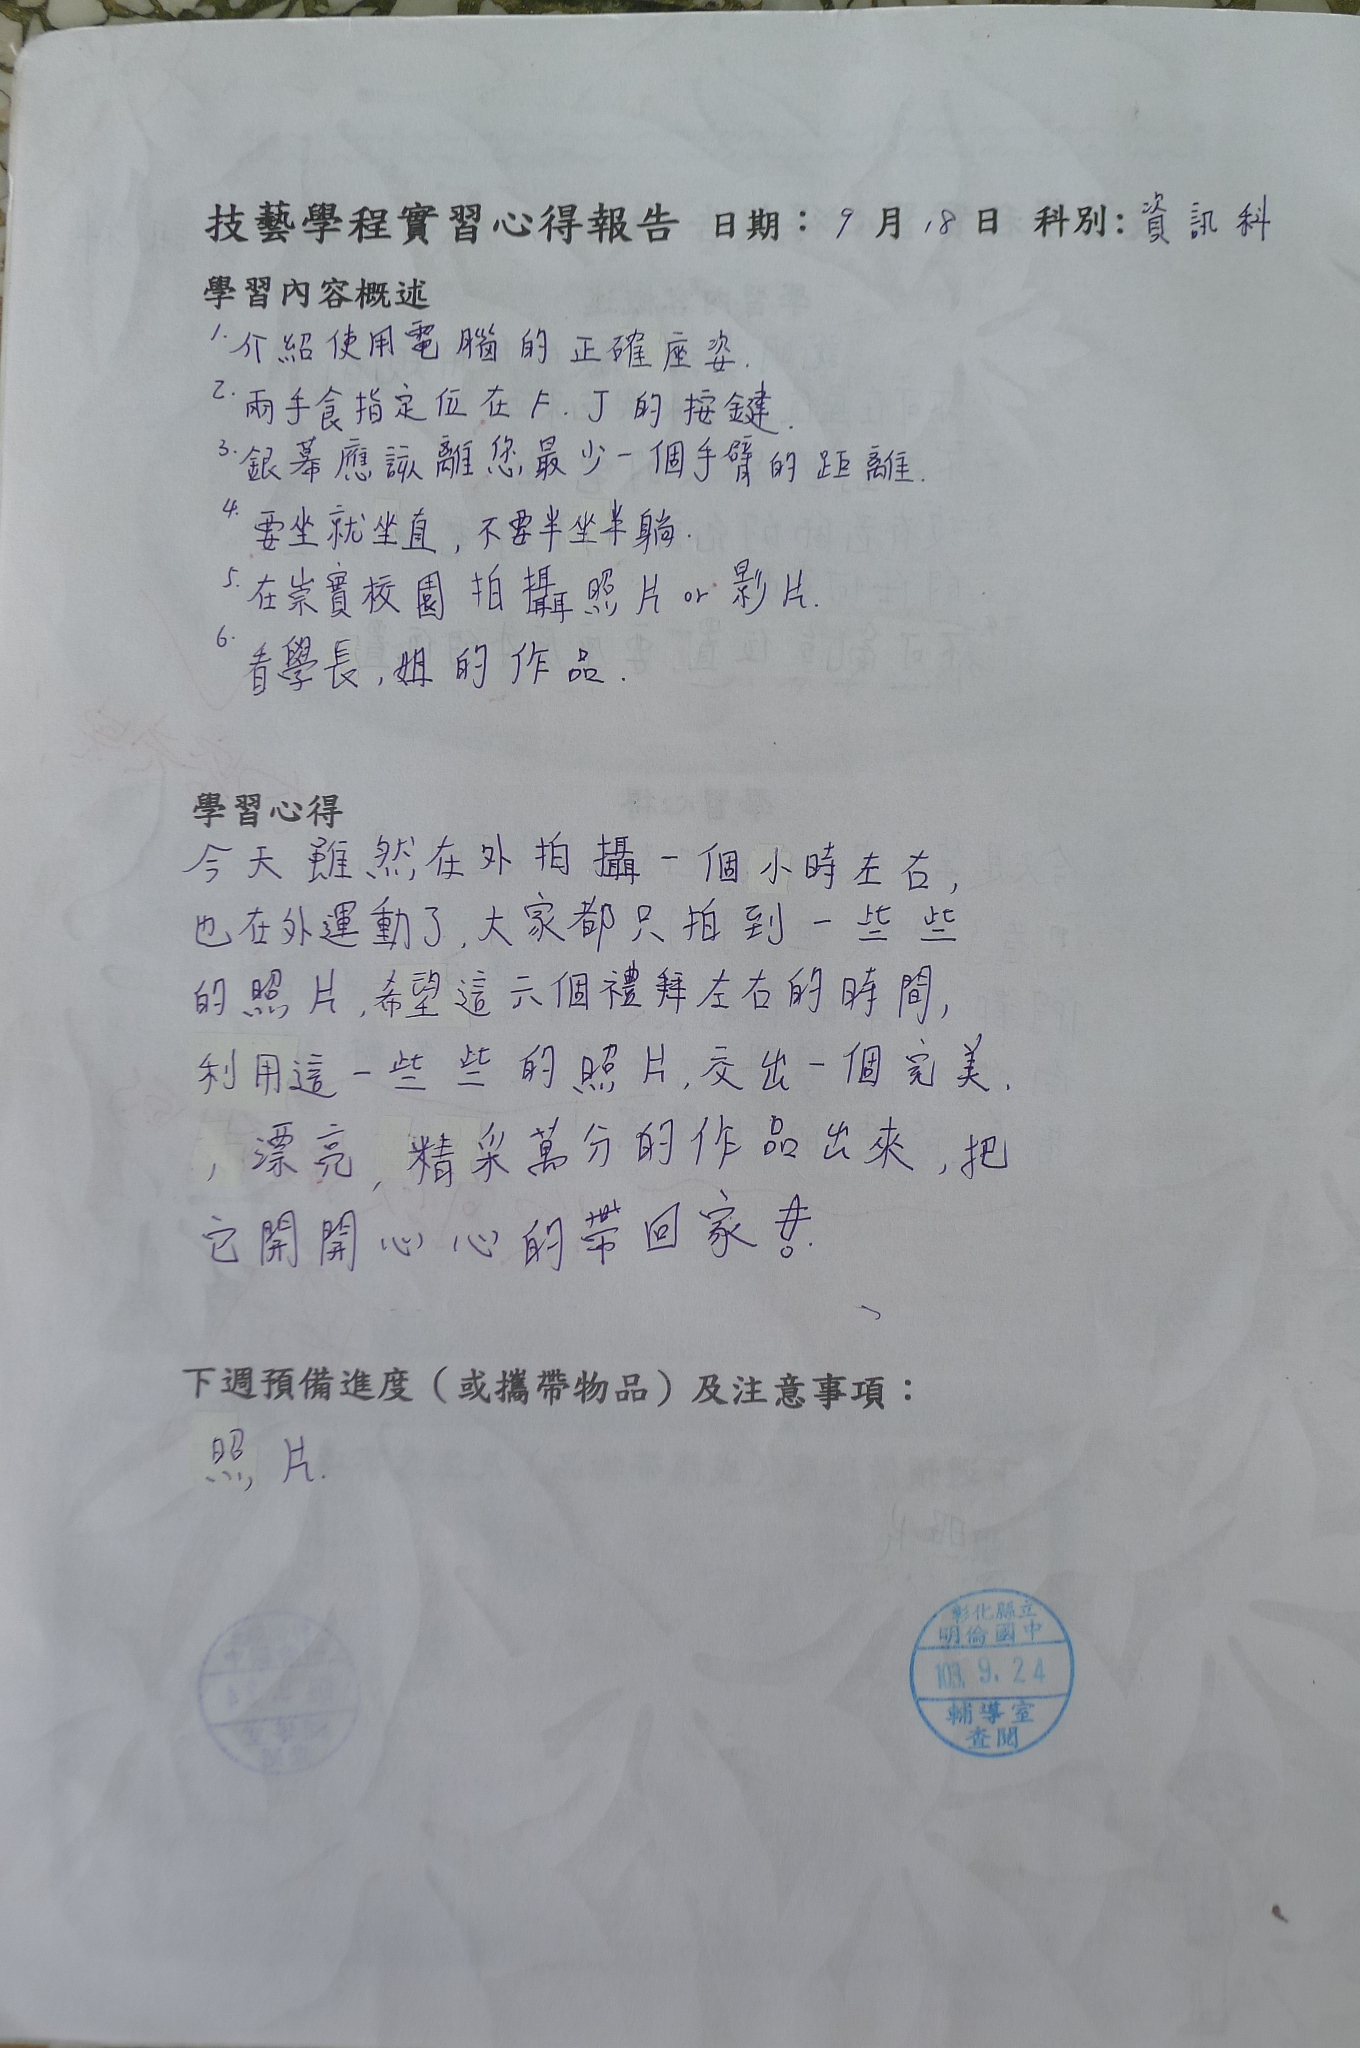 技藝學程實習心得報告 日期：9月18日 科別：資訊科
學習內容概述
1. 介紹使用電腦的正確座姿.
2. 兩手食指定位在F.J的按鍵.
3. 銀幕應該離您最少一個手臂的距離.
4. 要坐就坐直,不要半坐半躺.
5. 在崇實校園拍攝照片or影片.
6. 看學長,姐的作品.
學習心得
今天雖然在外拍攝一個小時左右,
也在外運動了,大家都只拍到一些些
的照片,希望這六個禮拜左右的時間,
利用這一些些的照片,交出一個完美.
,漂亮,精采萬分的作品出來,把
它開開心心的帶回家!
下週預備進度（或攜帶物品）及注意事項：
照片.
彰化縣立
明倫國中
103. 9. 24
輔導室
查閱